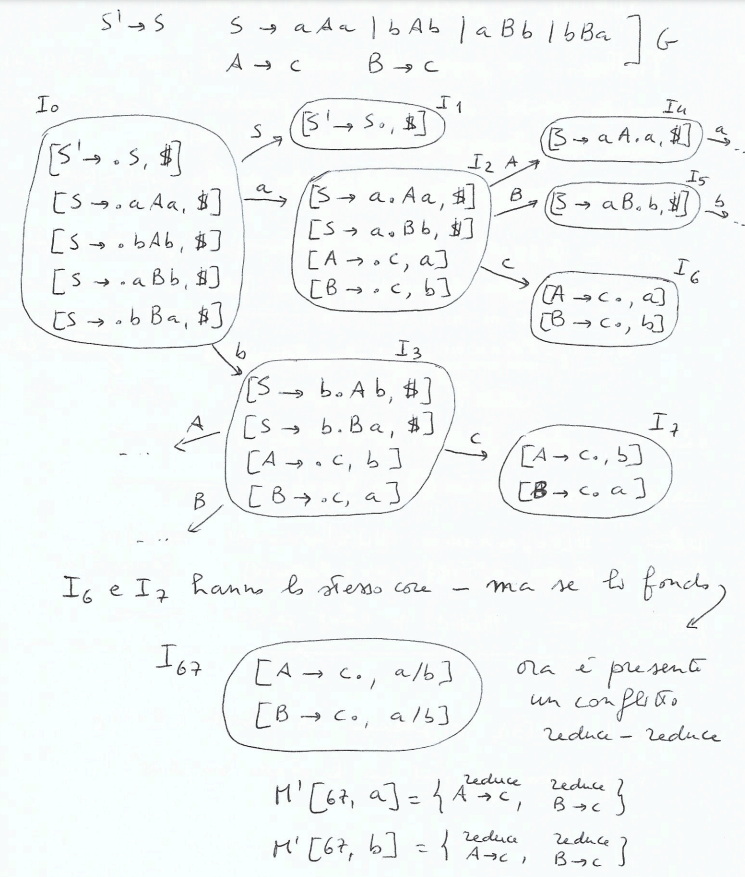 S' → S   S → aAa | bAb | aBb | bBa ] G
A → c   B → c
I0
[S' → .S, $]
[S → .aAa, $]
[S → .bAb, $]
[S → .aBb, $]
[S → .bBa, $]
S
I1
[S' → S., $]
a
I2
[S → a.Aa, $]
[S → a.Bb, $]
[A → .c, a]
[B → .c, b]
A
I4
[S → aA.a, $]
a
...
B
I5
[S → aB.b, $]
b
...
c
I6
[A → c., a]
[B → c., b]
b
I3
[S → b.Ab, $]
[S → b.Ba, $]
[A → .c, b]
[B → .c, a]
A
...
B
...
c
I7
[A → c., b]
[B → c. a]
I6 e I7 hanno lo stesso core – ma se li fondo,
I67
[A → c., a/b]
[B → c., a/b]
ora è presente
un conflitto
reduce – reduce
M'[67, a] = { reduce A→c, reduce B→c }
M'[67, b] = { reduce A→c, reduce B→c }